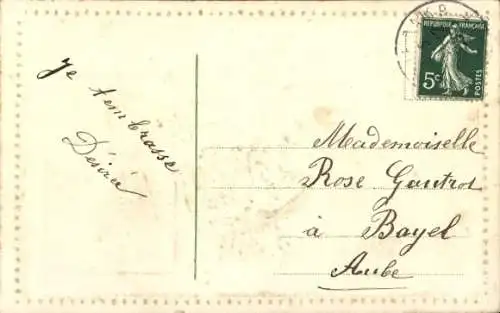 Je t'embrasse
Désiré
RÉPUBLIQUE FRANÇAISE
5c
POSTES
Mademoiselle
Rose Gautrot
à Bayel
Aube